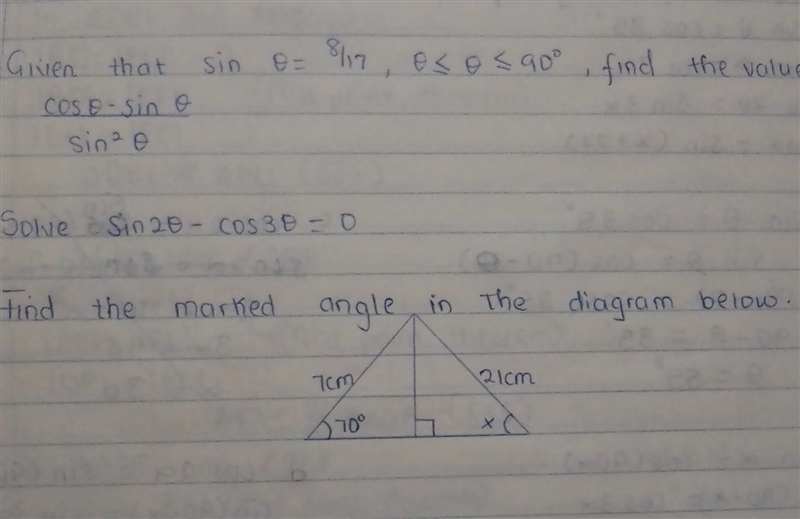 Given that sin θ = 8/17, θ ≤ θ ≤ 90°, find the value
cosθ - sin θ
sin² θ
Solve sin2θ - cos3θ = 0
Find the marked angle in the diagram below.
7cm 21cm
70° x